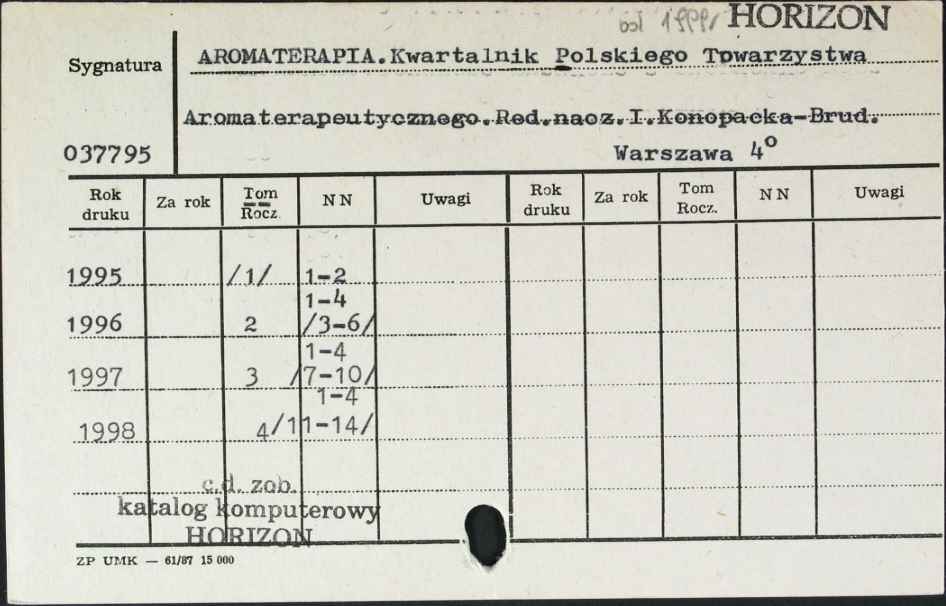 od 1999r HORIZON
Sygnatura
AROMATERAPIA.Kwartalnik Polskiego Towarzystwa
Aromaterapeutycznego.Red.nacz.I.Konopacka-Brud.
037795 Warszawa 4°
Rok druku Za rok Tom Rocz. NN Uwagi Rok druku Za rok Tom Rocz. NN Uwagi
1995 /1/ 1-2
1-4
1996 2 /3-6/
1-4
1997 3 /7-10/
1-4
1998 4 /11-14/
c.d. zob.
katalog komputerowy
HORIZON
ZP UMK — 61/87 15 000